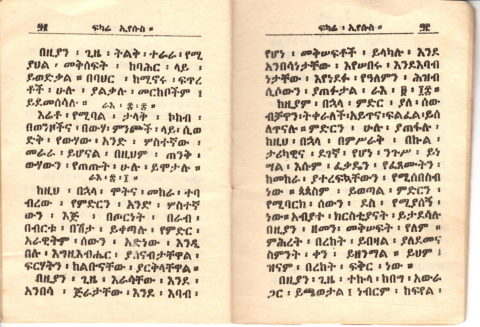 ፶፪ ፍካሬ ፡ ኢየሱስ ።
በዚያን ፡ ጊዜ ፡ ትልቅ ፡ ተራራ ፡ የሚ
ያህል ፡ መቅሰፍት ፡ ከባሕር ፡ ላይ ፡
ይወድቃል ። በባህር ፡ ከሚኖሩ ፡ ፍጥረ
ቶች ፡ ሁሉ ፡ ያልቃሉ ፡ መርከቦችም ፤
ይደመሰሳሉ ።
እሬቶ ፡ የሚባል ፡ ታላቅ ፡ ኮከብ ፡
በወንዞችና ፡ በውሃ ፡ ምንጮች ፡ ላይ ፡ ሲወ
ድቅ ፡ የውሃው ፡ አንድ ፡ ሦስተኛው ፡
መራራ ፡ ይሆናል ፡ በዚህም ፡ ጠንቅ ፡
ውሃውን ፡ የጠጡት ፡ ሁሉ ፡ ይሞታሉ ።
ከዚህ ፡ በኋላ ፡ ሞትና ፡ መከራ ፡ ተባ
ብረው ፡ የምድርን ፡ አንድ ፡ ሦስተኛ
ውን ፡ እጅ ፡ በጦርነት ፡ በራብ ፡
በብርቱ ፡ በሽታ ፡ ይቀጣሉ ፡ የምድር ፡
አራዊትም ፡ ሰውን ፡ አድነው ፡ እንዲ
በሉ ፡ እግዚአብሔር ፡ ያሰናብታቸዋል ፡
ፍርሃትን ፡ ከልቦናቸው ፡ ያርቅላቸዋል ።
በዚያን ፡ ጊዜ ፡ እራሳቸው ፡ እንደ ፡
አንበሳ ፡ ጅራታቸው ፡ እንደ ፡ እባብ ፡
ፍካሬ ፡ ኢየሱስ ።
የሆነ ፡ መቅሠፍቶች ፡ ይላካሉ ፡ እንደ
አንበሳነታቸው ፡ እየሠበሩ ፡ እንደእባብ
ነታቸው ፡ እየነደፉ ፡ የዓለምን ፡ ሕዝብ
ሲሶውን ፡ ያጠፉታል ፡
ከዚያም ፡ በኋላ ፡ ምድር ፡ ያለ ፡ ሰው
ሁሉ ፡ ያጠፋሉ ፡
ከዚህ ፡ በኋላ ፡ በምሥራቅ ፡ በኩል ፡
ታሪካዊና ፡ ደገኛ ፡ የሆነ ፡ ንጉሥ ፡ ይነ
ግሣል ፡ እሱም ፡ ፈቃዴን ፡ የፈጸሙትን ፡
ከመከራ ፡ ያተረፍኳቸውን ፡ የሚሰበስብ
ነው ። ጳጳስም ፡ ይወጣል ፡ ምድርን ፡
የሚባርክ ፡ ሰውን ፡ ደስ ፡ የሚያሰኝ
ነው ። አብያተ ፡ ክርስቲያናት ፡ ይታደሳሉ
በዚያን ፡ ዘመን ፡ መቅሠፍት ፡ የለም ።
ምሕረት ፡ በረከት ፡ ይበዛል ፡ ያለደመና
ስምንት ፡ ቀን ፡ ይዘንማል ። ይህም ፡
ዝናም ፡ በረከት ፡ ፍቅር ፡ ነው ።
በዚያን ፡ ጊዜ ፡ ተኩላ ፡ ከበግ ፡ አውራ
ጋር ፡ ይጫወታል ፤ ነብርም ፡ ከፍየል ፡